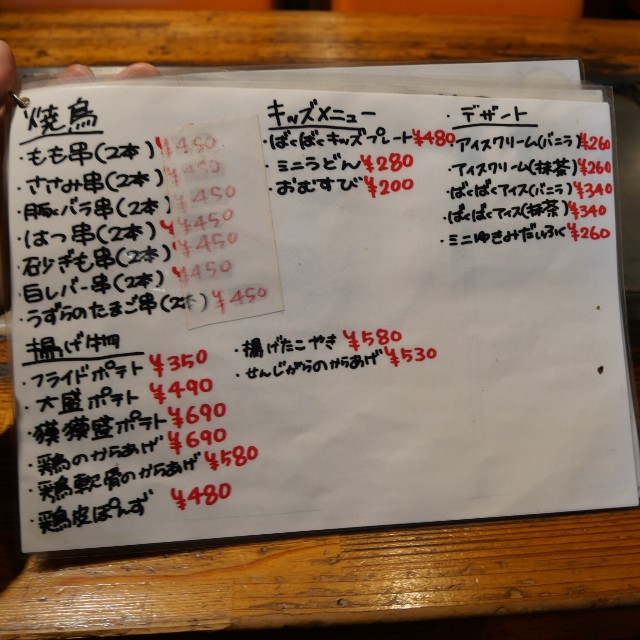 焼鳥
・もも串(2本) ¥450
・ささみ串(2本) ¥450
・豚バラ串(2本) ¥450
・はつ串(2本) ¥450
・砂ずも串(2本) ¥450
・白レバー串(2本) ¥450
・うずらのたまご串(2本) ¥450
揚げ物
・フライドポテト ¥350
・大盛ポテト ¥490
・獏獏盛ポテト ¥690
・鶏のからあげ ¥690
・鶏軟骨のからあげ ¥580
・鶏皮ぽんず ¥480
・揚げたこやき ¥580
・せんじがらのからあげ ¥530
キッズメニュー
・ばくばくキッズプレート ¥480
・ミニうどん ¥280
・おむすび ¥200
・デザート
・アイスクリーム(バニラ) ¥260
・アイスクリーム(抹茶) ¥260
・ばくばくアイス(バニラ) ¥340
・ばくばくアイス(抹茶) ¥340
・ミニゆきみだいふく ¥260